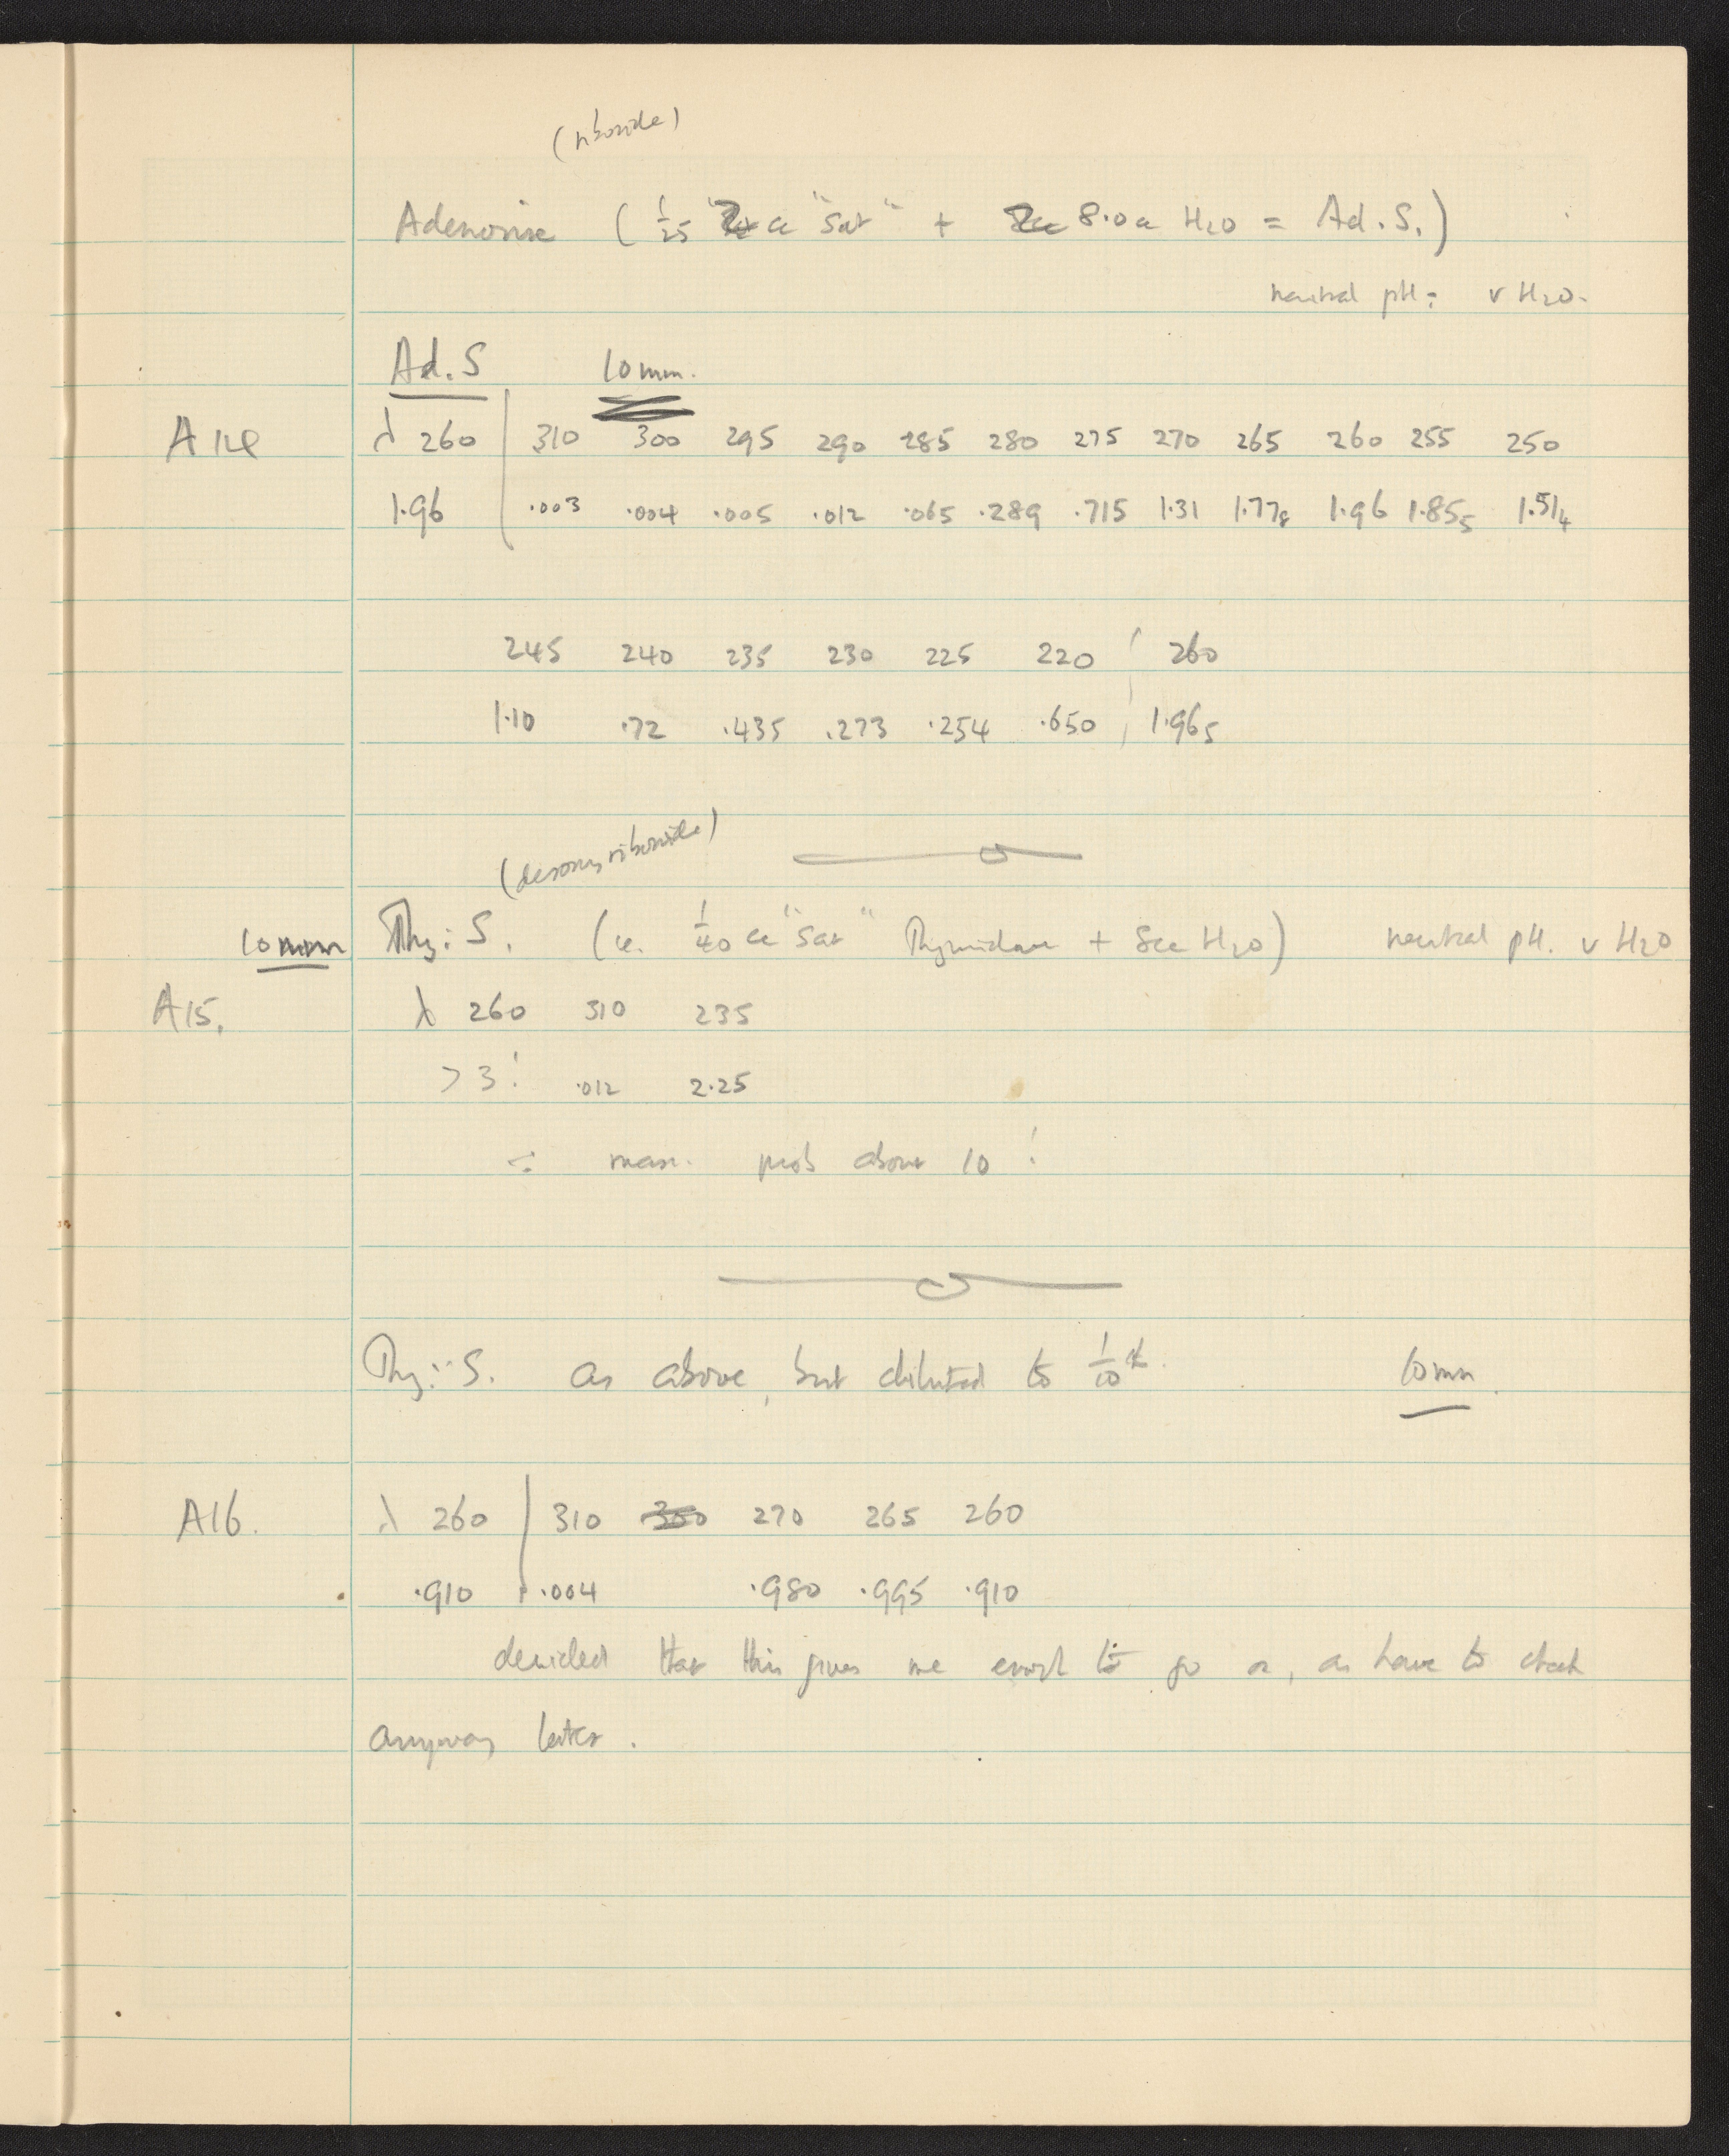 (riboside)
Adenosine ( 1/25 cc "Sat" + 8.0 cc H2O = Ad. S.)
neutral pH: v H2O.
Ad. S 10 mm.
A14 λ 260 310 300 295 290 285 280 275 270 265 260 255 250
1.96 .003 .004 .005 .012 .065 .289 .715 1.31 1.778 1.96 1.855 1.514
245 240 235 230 225 220 260
1.10 .72 .435 .273 .254 .650 1.965
(desoxyriboside)
10 mm Thy: S. (ie. 1/40 cc "Sat" Thymidine + 8cc H2O) neutral pH. v H2O
A15. λ 260 310 235
>3! .012 2.25
∴ max. prob above 10!
Thy: S. as above, but diluted to 1/10 th. 10 mm.
A16. λ 260 310 300 270 265 260
.910 .004 .980 .995 .910
decided that this gives me enough to go on, as have to check
anyway later.